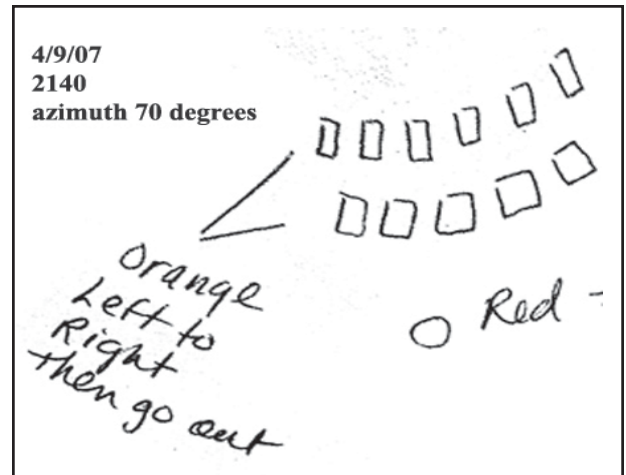 4/9/07
2140
azimuth 70 degrees
Orange
Left to
Right
then go out
Red -